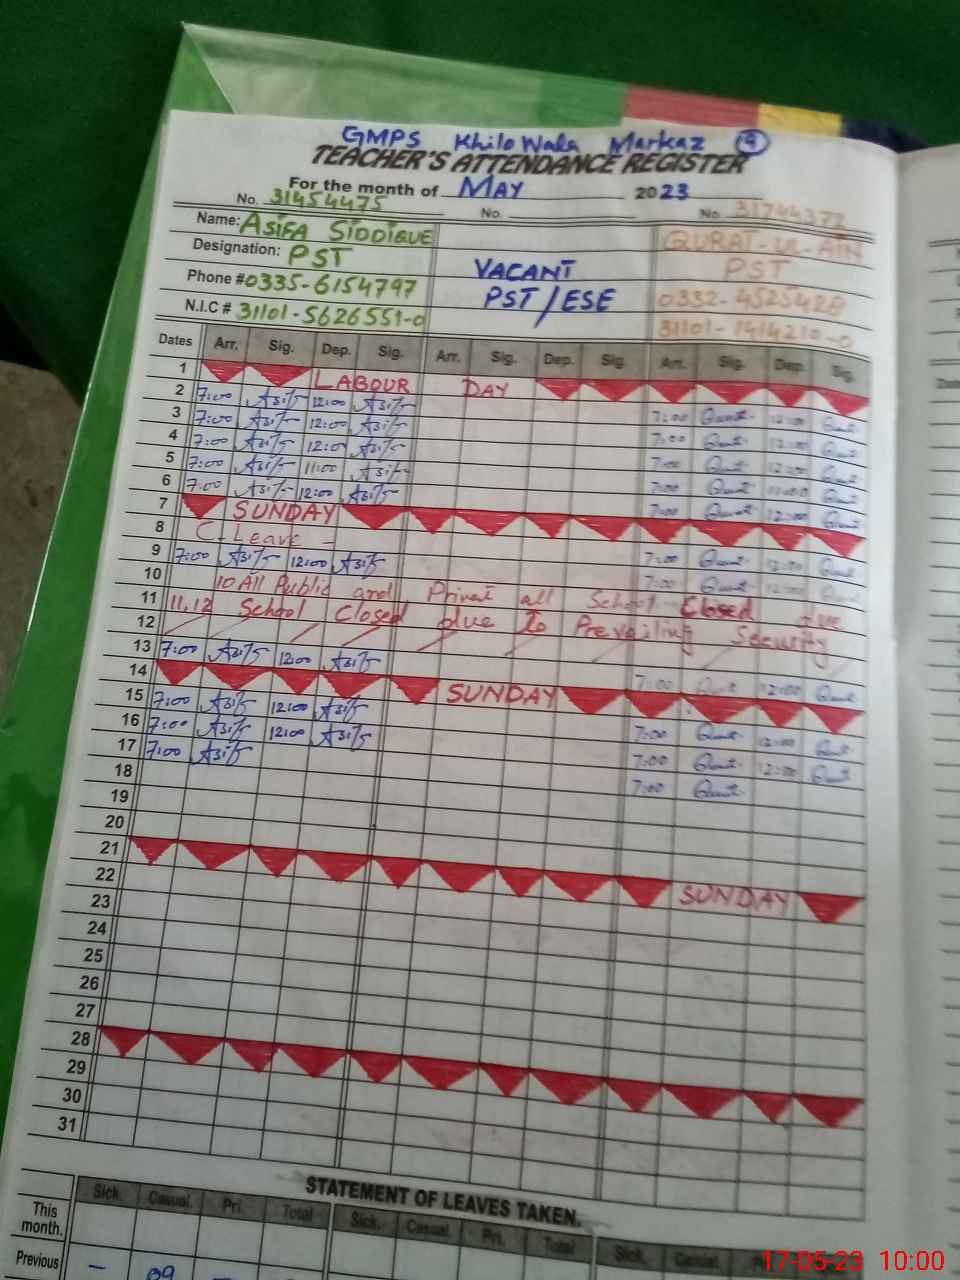 GMPS Khilo Wala Markaz 9
TEACHER'S ATTENDANCE REGISTER
For the month of MAY 2023
No. 31454475 No. No. 31744372
Name: ASIFA SIDDIQUE QURAT-UL-AIN
Designation: PST VACANT PST
Phone # 0335-6154797 PST/ESE 0332-4525428
N.I.C # 31101-5626551-0 31101-1414210-0
Dates Arr. Sig. Dep. Sig. Arr. Sig. Dep. Sig. Arr. Sig. Dep. Sig.
1 LABOUR DAY
2 7:00 Asif 12:00 Asif 7:00 Qurat 12:00 Qurat
3 7:00 Asif 12:00 Asif 7:00 Qurat 12:00 Qurat
4 7:00 Asif 12:00 Asif 7:00 Qurat 12:00 Qurat
5 7:00 Asif 11:00 Asif 7:00 Qurat 11:00 Qurat
6 7:00 Asif 12:00 Asif 7:00 Qurat 12:00 Qurat
7 SUNDAY
8 C-Leave - 7:00 Qurat 12:00 Qurat
9 7:00 Asif 12:00 Asif 7:00 Qurat 12:00 Qurat
10 10 All Public and Privat all School Closed due
11 11,12 School Closed due to Prevailing Security
12
13 7:00 Asif 12:00 Asif 7:00 Qurat 12:00 Qurat
14 SUNDAY
15 7:00 Asif 12:00 Asif 7:00 Qurat 12:00 Qurat
16 7:00 Asif 12:00 Asif 7:00 Qurat 12:00 Qurat
17 7:00 Asif 7:00 Qurat
18
19
20
21 SUNDAY
22
23
24
25
26
27
28
29
30
31
STATEMENT OF LEAVES TAKEN.
Sick. Casual. Pri. Total Sick. Casual Pri. Total Sick. Casual
This month.
Previous - 09 -
17-05-23 10:00